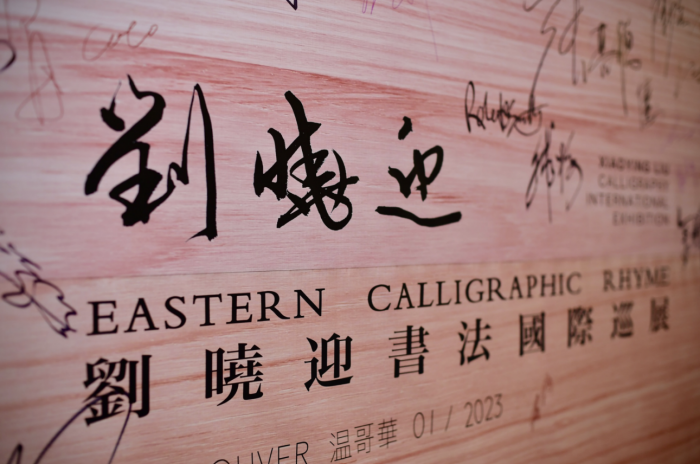 coco
劉曉迎
XIAOYING LIU
CALLIGRAPHY
INTERNATIONAL
EXHIBITION
EASTERN CALLIGRAPHIC RHYME
劉曉迎書法國際巡展
OUVER 温哥華 01 / 2023